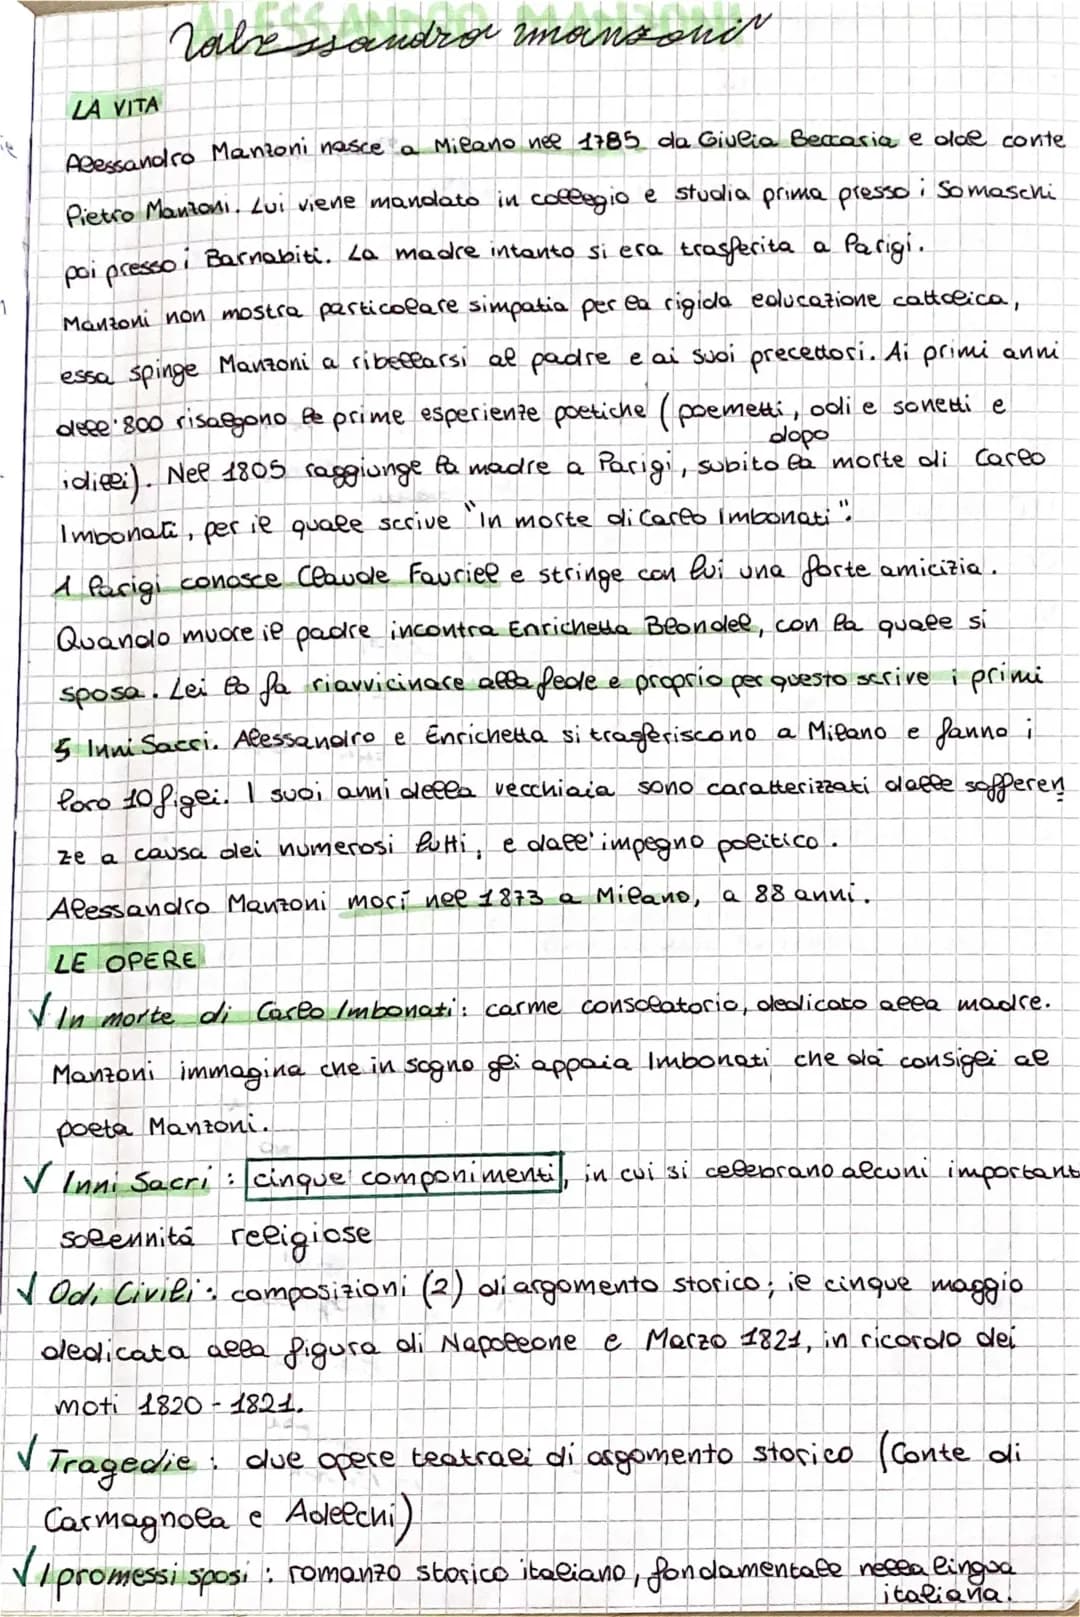 Alessandro Manzoni
LA VITA
Alessandro Manzoni nasce a Milano nel 1785 da Giulia Beccaria e dal conte
Pietro Manzoni. Lui viene mandato in collegio e studia prima presso i Somaschi
poi presso i Barnabiti. La madre intanto si era trasferita a Parigi.
Manzoni non mostra particolare simpatia per la rigida educazione cattolica,
essa spinge Manzoni a ribellarsi al padre e ai suoi precettori. Ai primi anni
dell'800 risalgono le prime esperienze poetiche (poemetti, odi e sonetti e
dopo
idilli). Nel 1805 raggiunge la madre a Parigi, subito la morte di Carlo
Imbonati, per il quale scrive "In morte di Carlo Imbonati".
A Parigi conosce Claude Fauriel e stringe con lui una forte amicizia.
Quando muore il padre incontra Enrichetta Blondel, con la quale si
sposa. Lei lo fa riavvicinare alla fede e proprio per questo scrive i primi
5 Inni Sacri. Alessandro e Enrichetta si trasferiscono a Milano e fanno i
loro 10 figli. I suoi anni della vecchiaia sono caratterizzati dalle sofferen
ze a causa dei numerosi lutti, e dall'impegno politico.
Alessandro Manzoni morì nel 1873 a Milano, a 88 anni.
LE OPERE
✓ In morte di Carlo Imbonati: carme consolatorio, dedicato alla madre.
Manzoni immagina che in sogno gli appaia Imbonati che dà consigli al
poeta Manzoni.
✓ Inni Sacri: cinque componimenti, in cui si celebrano alcuni important
solennità religiose
✓ Odi Civili: composizioni (2) di argomento storico; il cinque maggio
dedicata alla figura di Napoleone e Marzo 1821, in ricordo dei
moti 1820-1821.
✓ Tragedie: due opere teatrali di argomento storico (Conte di
Carmagnola e Adelchi)
✓ I promessi sposi: romanzo storico italiano, fondamentale nella lingua
italiana.